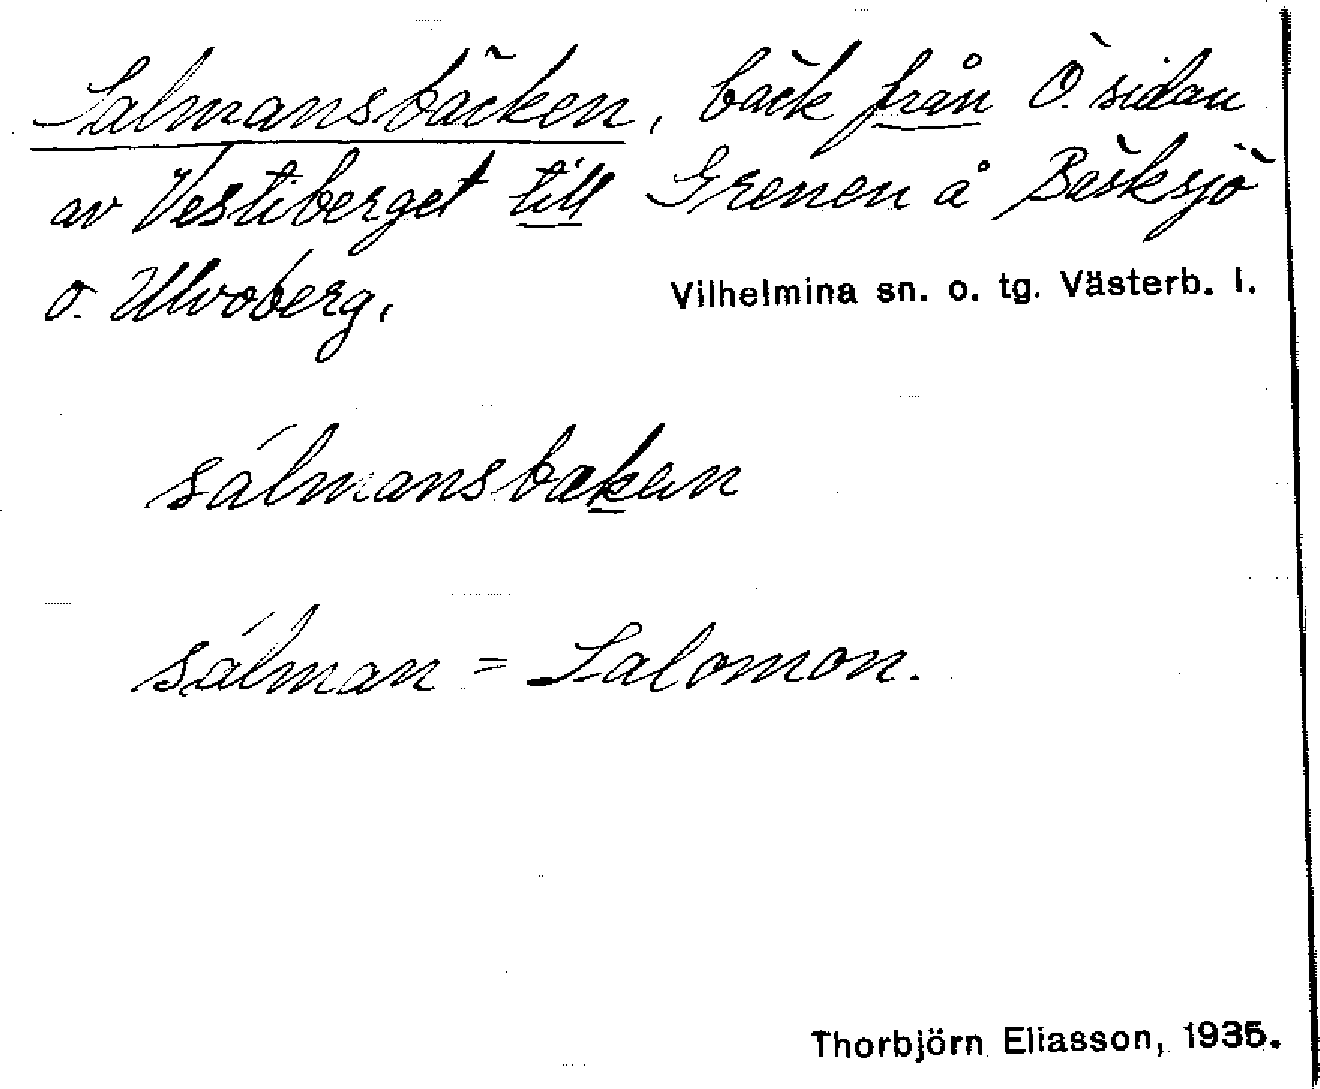 Salmansbäcken, bäck från Ö. sidan
av Vestiberget till Grenen å Bäsksjö
o. Ulvoberg.
Vilhelmina sn. o. tg. Västerb. l.
sálmansbækæn
sálman = Salomon.
Thorbjörn Eliasson, 1935.